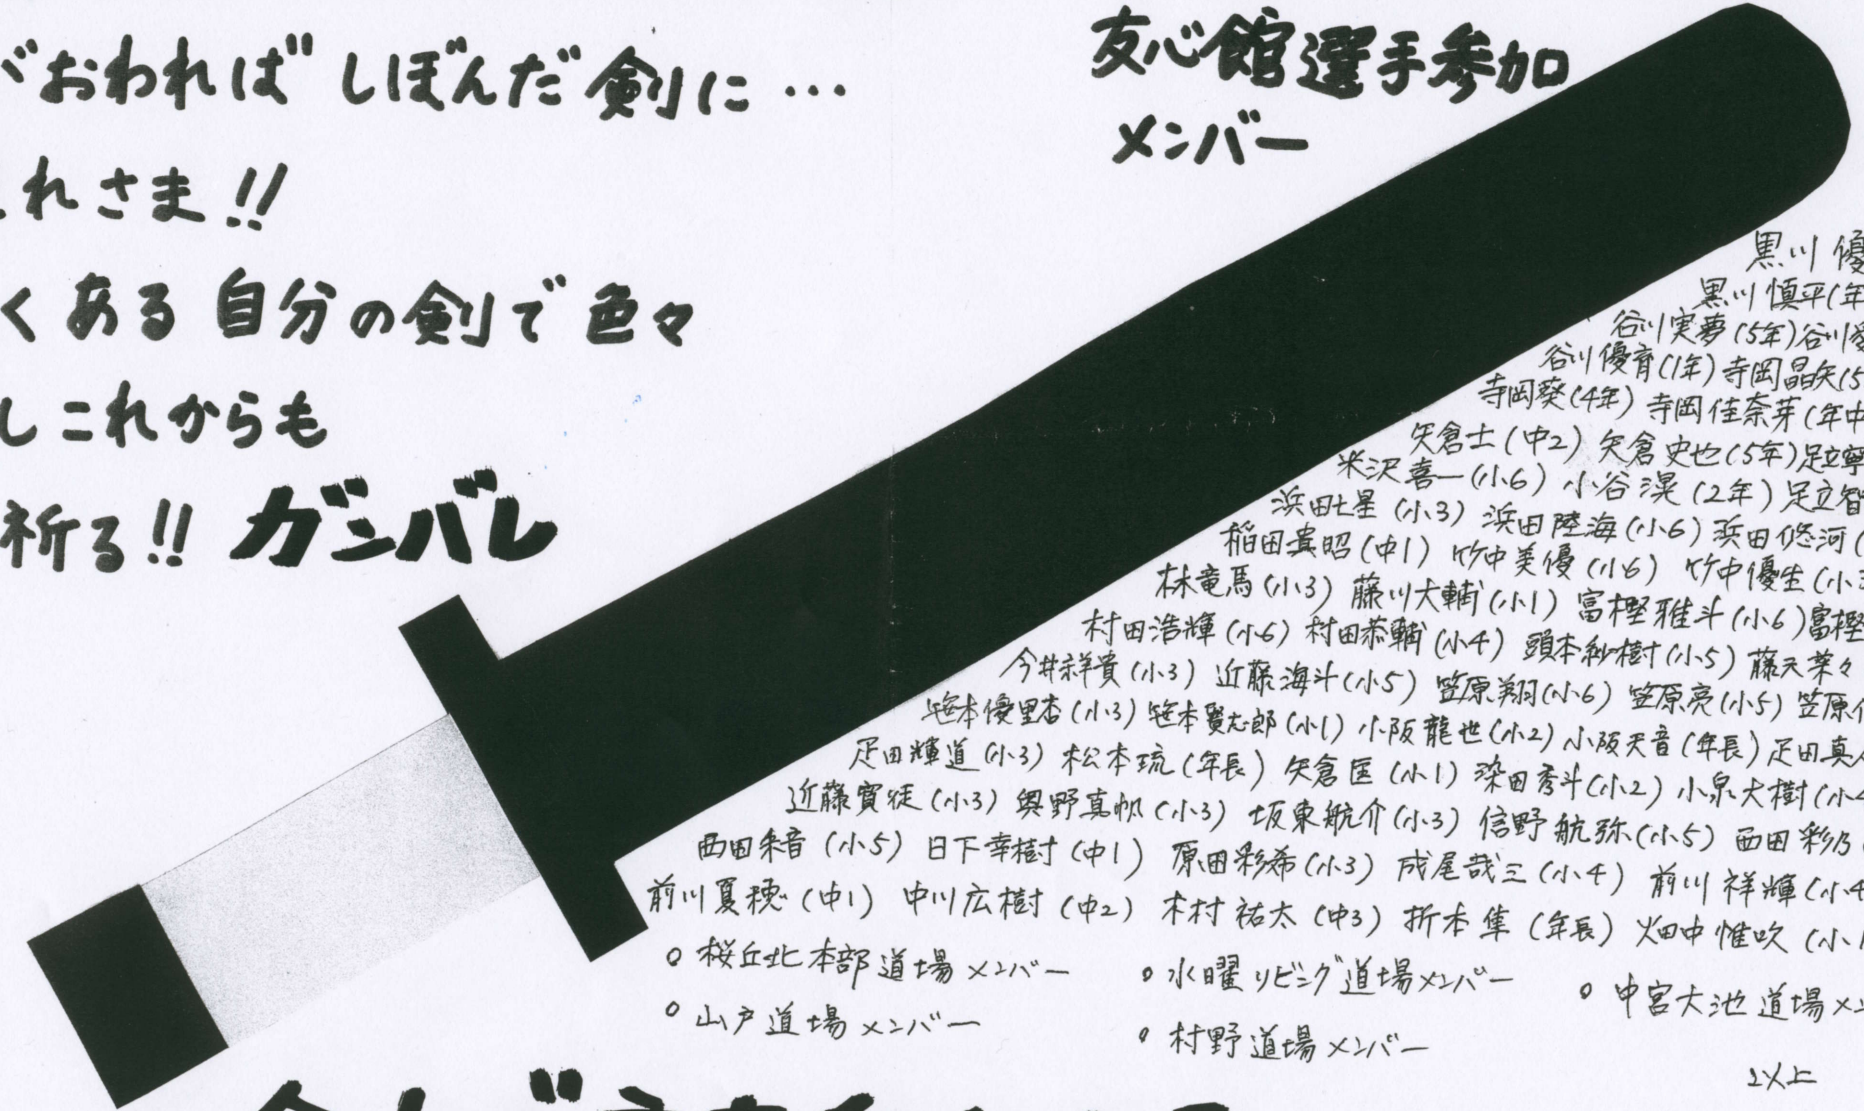 がおわれば しぼんだ 剣に…
れさま!!
く ある 自分の剣で 色々
し これからも
祈る!! ガンバレ
友心館選手参加
メンバー
黒川 優
黒川 慎平(年
谷川実夢(5年)谷川
谷川優育(1年) 寺岡晶矢(5
寺岡葵(4年) 寺岡佳奈芽(年中
矢倉士(中2) 矢倉史也(5年)足立寧
米沢喜一(小6) 小谷滉(2年) 足立智
浜田七星(小3) 浜田陸海(小6) 浜田悠河(
稲田貴昭(中1) 竹中美優(小6) 竹中優生(小3
林竜馬(小3) 藤川大輔(小1) 富樫雅斗(小6)富樫
村田浩輝(小6) 村田恭輔(小4) 頭本紗樹(小5) 藤天菜々
今井祥貴(小3) 近藤海斗(小5) 笠原翔(小6) 笠原亮(小5) 笠原
笹本優里杏(小3) 笹本賢志郎(小1) 小阪龍也(小2) 小阪天音(年長) 疋田真
疋田輝道(小3) 松本琉(年長) 矢倉匡(小1) 染田秀斗(小2) 小泉大樹(小4
近藤寛徒(小3) 奥野真帆(小3) 坂東航介(小3) 信野航弥(小5) 西田彩乃(
西田朱音(小5) 日下幸樹(中1) 原田彩希(小3) 成尾哉三(小4) 前川祥輝(小4
前川夏穂(中1) 中川広樹(中2) 木村祐太(中3) 折本隼(年長) 畑中惟吹(小1
○桜丘北本部道場メンバー ○水曜リビング道場メンバー ○中宮大池道場メン
○山戸道場メンバー ○村野道場メンバー
以上